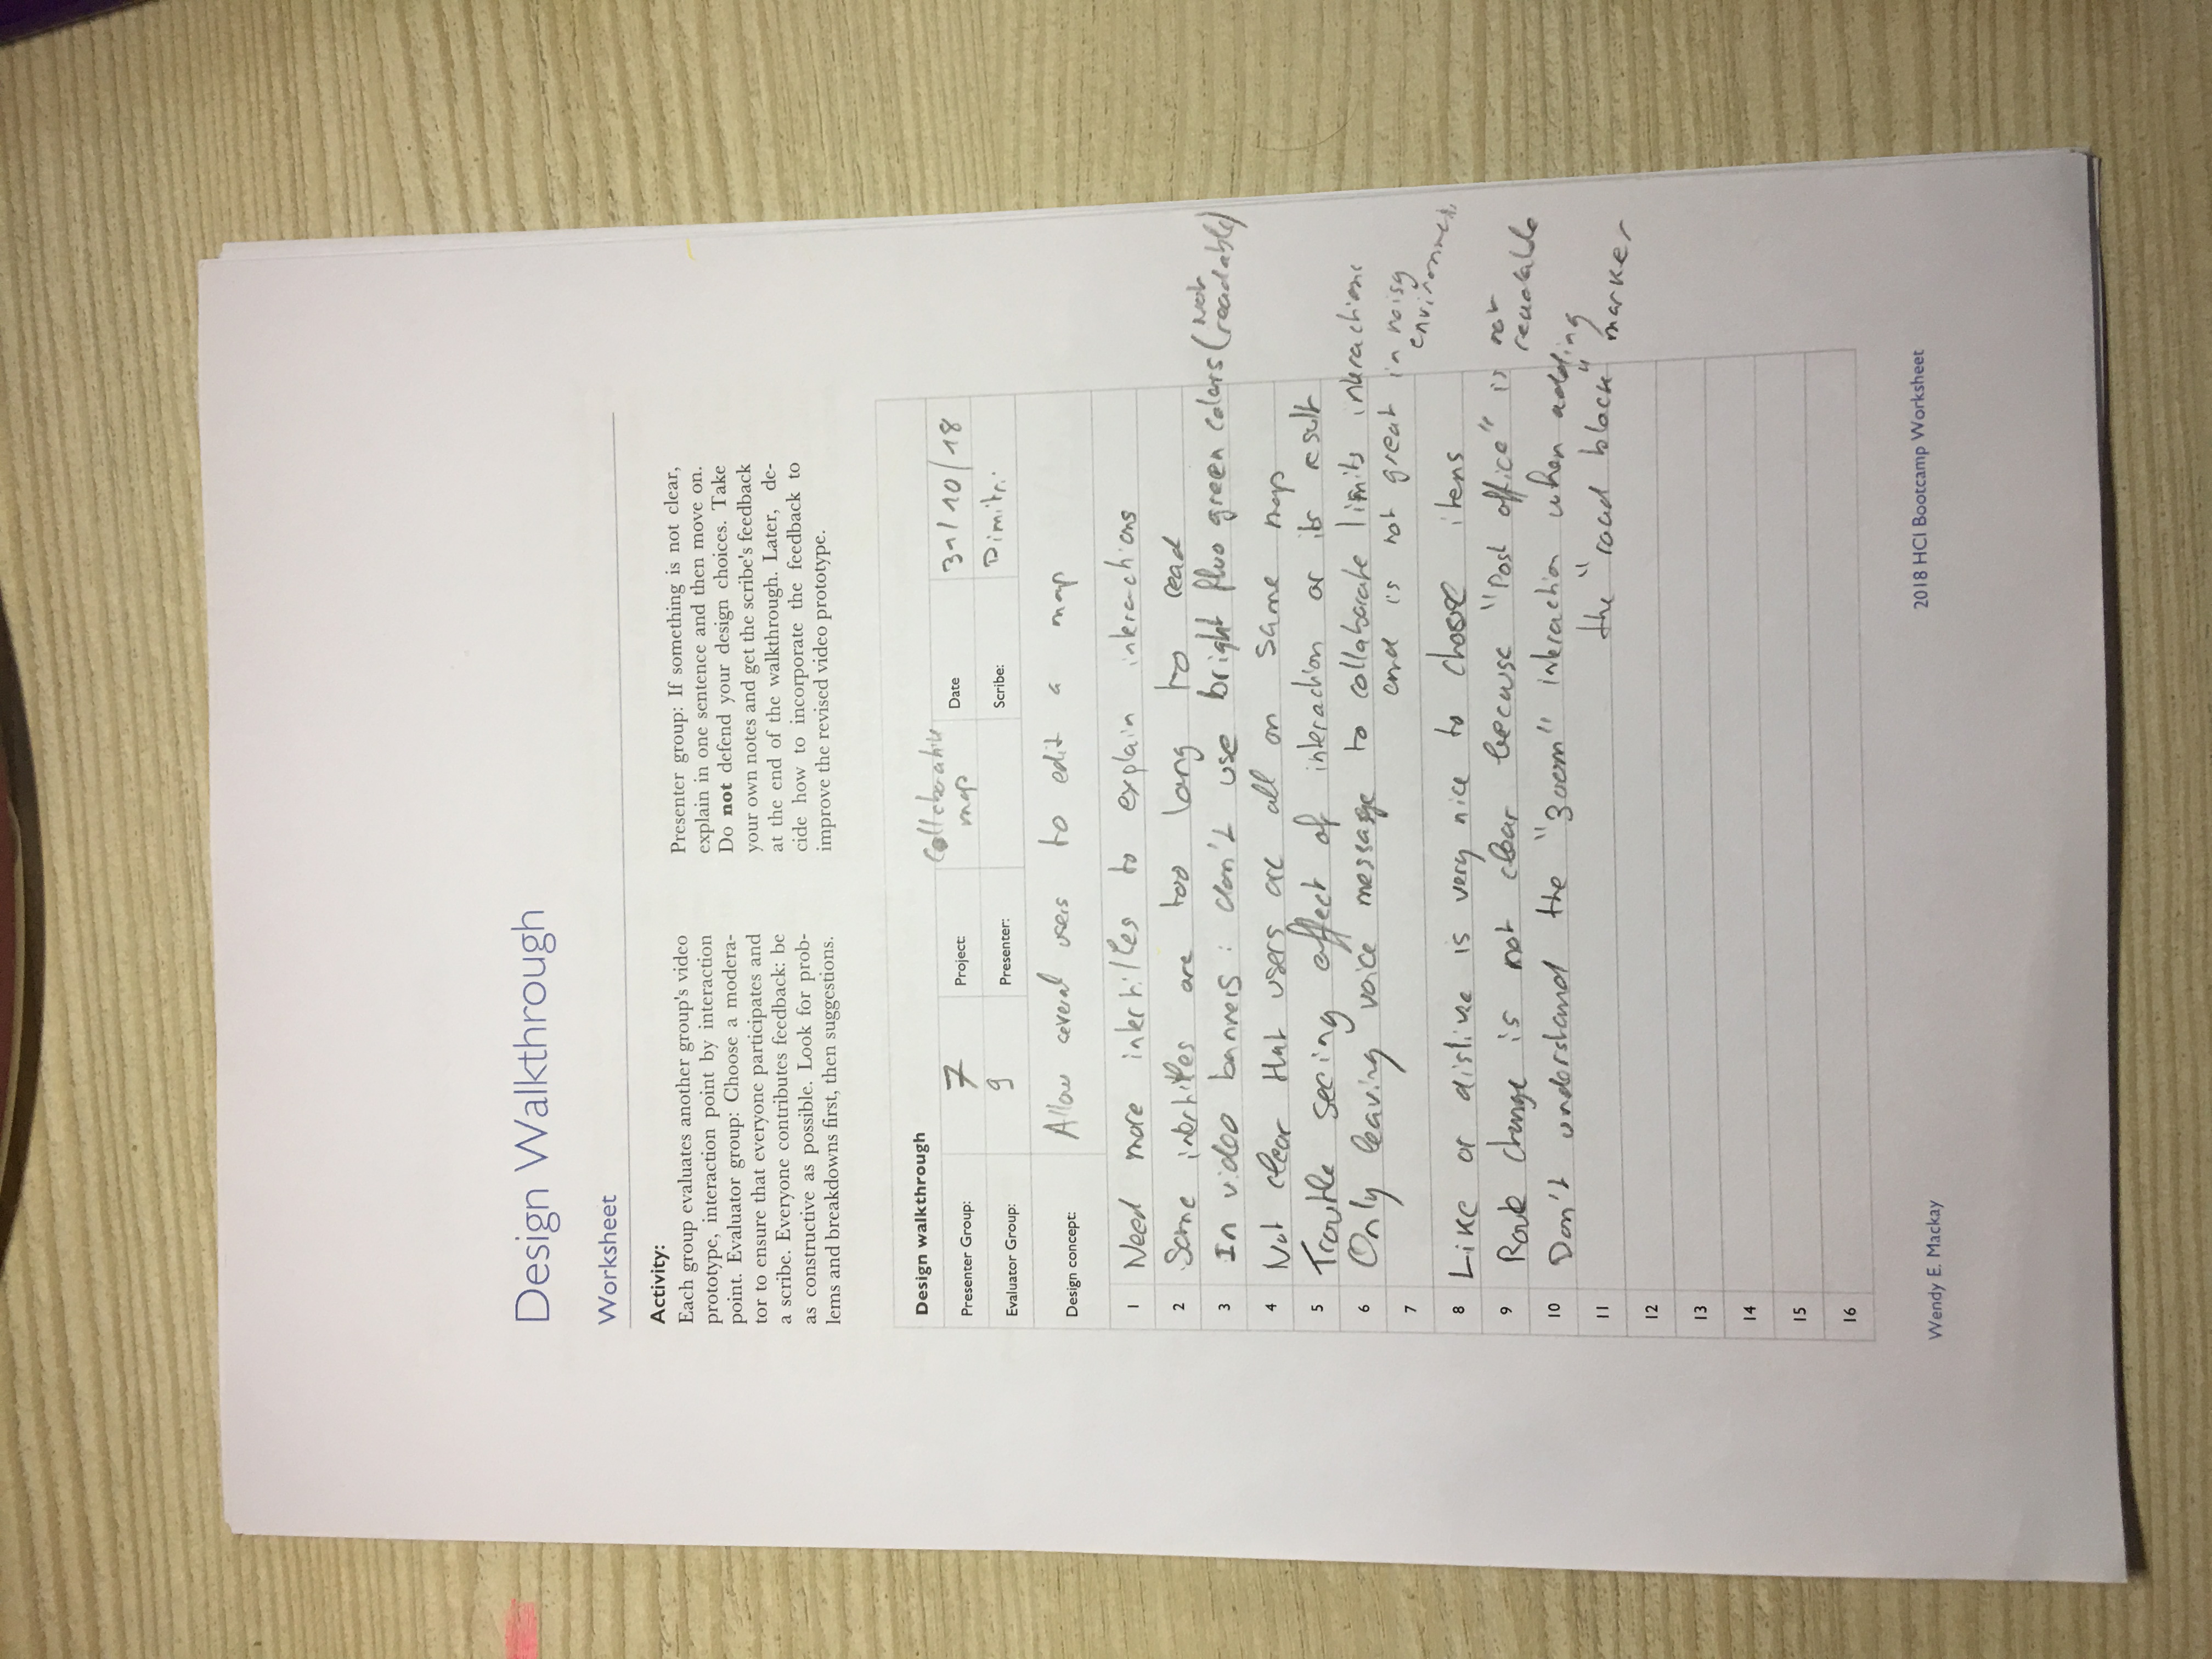 Design Walkthrough
Worksheet
Activity:
Each group evaluates another group's video
prototype, interaction point by interaction
point. Evaluator group: Choose a modera-
tor to ensure that everyone participates and
a scribe. Everyone contributes feedback: be
as constructive as possible. Look for prob-
lems and breakdowns first, then suggestions.
Presenter group: If something is not clear,
explain in one sentence and then move on.
Do not defend your design choices. Take
your own notes and get the scribe's feedback
at the end of the walkthrough. Later, de-
cide how to incorporate the feedback to
improve the revised video prototype.
Design walkthrough
Presenter Group: 7 Project: Collaborative map Date 31/10/18
Evaluator Group: 9 Presenter: Scribe: Dimitri
Design concept: Allow several users to edit a map
1 Need more intertitles to explain interactions
2 Some intertitles are too long to read
3 In video banners: don't use bright fluo green colors (not readable)
4 Not clear that users are all on same map
5 Trouble seeing effect of interaction or its result
6 Only leaving voice message to collaborate limits interactions
7 and is not great in noisy environment
8 Like or dislike is very nice to choose items
9 Route change is not clear because "Post office" is not readable
10 Don't understand the "zoom" interaction when adding
11 the "road block" marker
12
13
14
15
16
Wendy E. Mackay
2018 HCI Bootcamp Worksheet